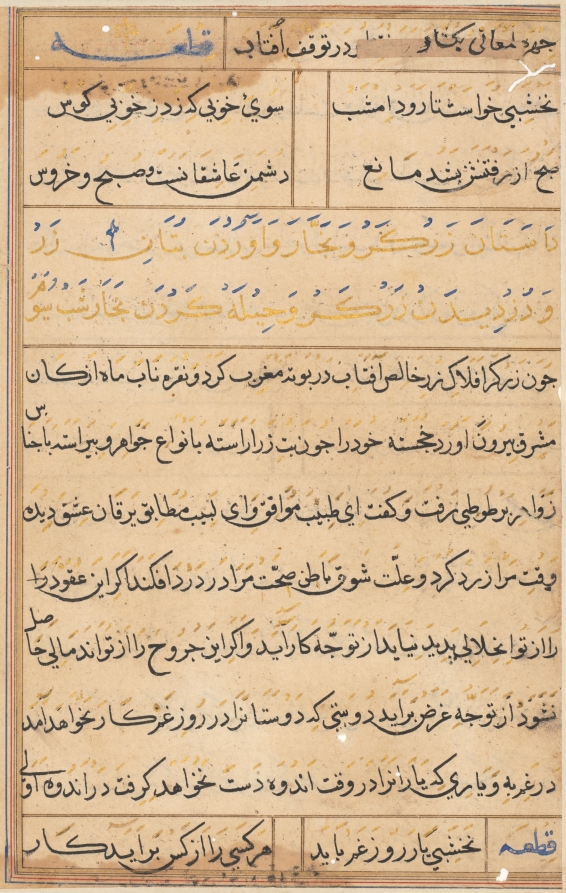 چهره لمعانی یکتاو در توقف آفتاب قطعه
نخشبی خواست تا رود امشب سوی خوبی که زد ز خوبی کوس
صبح از رفتنش بشد مانع دشمن عاشقانست صبح و خروس
داستان زرکر و نجار و اوردن بتان زر
و دزدیدن زرکر و حیله کردن نجار بشب سوم
چون زرکر افلاک زر خالص آفتاب در بوته مغرب کرد و نقره ناب ماه از کان
مشرق بیرون اورد خجسته خود را چون بت زر اراسته بانواع جواهر و پیراسته باجناس
زواهر بر طوطی رفت و کفت ای طبیب موافق و ای لبیب مطابق یرقان عشق دیده
وقت مرا زرد کرد و علت شوق باطن صحت مرا در درد افکند اکر این عقود را
را از تو انحلالی پدید نیاید از تو چه کار آید و اکر این جروح را از تو اندمالی حاصل
نشود از تو چه غرض براید دوستی که دوستانرا در روز غم کار نخواهد آمد
در غربه و یاری که یارانرا در وقت اندوه دست نخواهد کرفت در اندوه اولی
قطعه نخشبی یار روز غم باید هر کسی را از کس براید کار